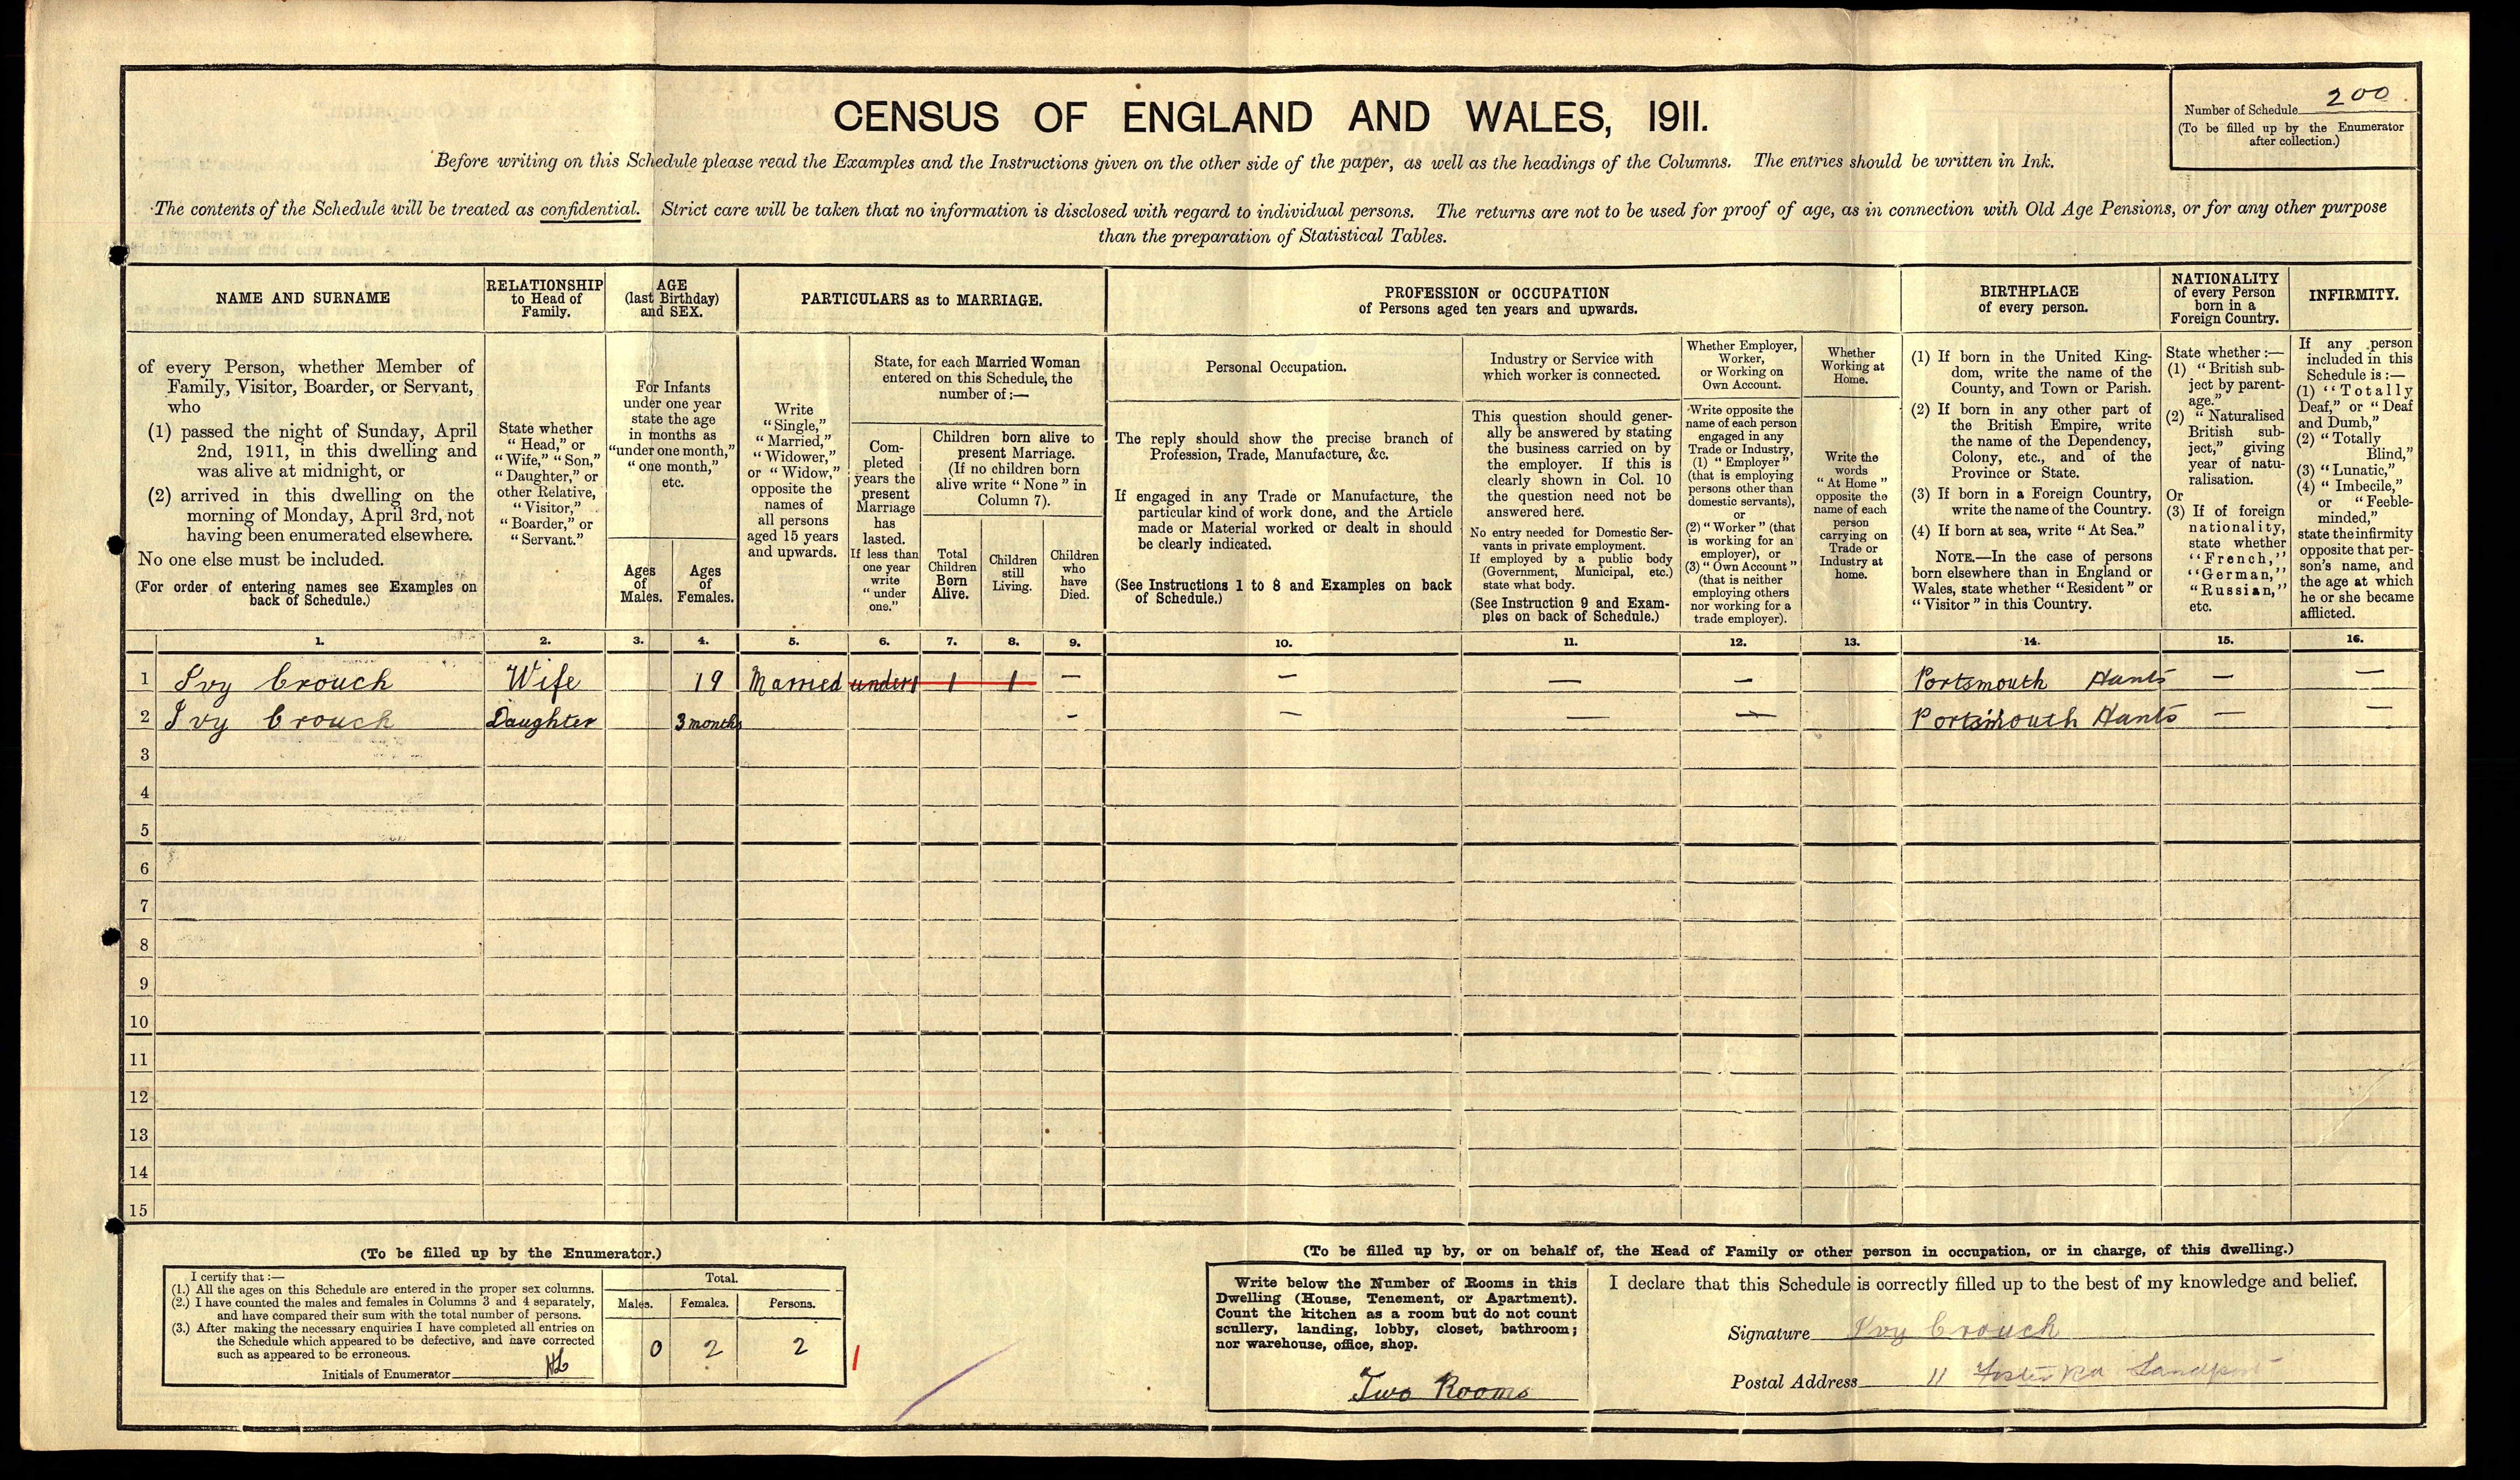 CENSUS OF ENGLAND AND WALES, 1911.
Number of Schedule 200
(To be filled up by the Enumerator
after collection.)
Before writing on this Schedule please read the Examples and the Instructions given on the other side of the paper, as well as the headings of the Columns. The entries should be written in Ink.
The contents of the Schedule will be treated as confidential. Strict care will be taken that no information is disclosed with regard to individual persons. The returns are not to be used for proof of age, as in connection with Old Age Pensions, or for any other purpose
than the preparation of Statistical Tables.
NAME AND SURNAME
of every Person, whether Member of
Family, Visitor, Boarder, or Servant,
who
(1) passed the night of Sunday, April
2nd, 1911, in this dwelling and
was alive at midnight, or
(2) arrived in this dwelling on the
morning of Monday, April 3rd, not
having been enumerated elsewhere.
No one else must be included.
(For order of entering names see Examples on
back of Schedule.)
RELATIONSHIP
to Head of
Family.
State whether
"Head," or
"Wife," "Son,"
"Daughter," or
other Relative,
"Visitor,"
"Boarder," or
"Servant."
AGE
(last Birthday)
and SEX.
For Infants
under one year
state the age
in months as
"under one month,"
"one month,"
etc.
Ages
of
Males.
Ages
of
Females.
PARTICULARS as to MARRIAGE.
Write
"Single,"
"Married,"
"Widower,"
or "Widow,"
opposite the
names of
all persons
aged 15 years
and upwards.
State, for each Married Woman
entered on this Schedule, the
number of:—
Com-
pleted
years the
present
Marriage
has
lasted.
If less than
one year
write
"under
one."
Children born alive to
present Marriage.
(If no children born
alive write "None" in
Column 7).
Total
Children
Born
Alive.
Children
still
Living.
Children
who
have
Died.
PROFESSION or OCCUPATION
of Persons aged ten years and upwards.
Personal Occupation.
The reply should show the precise branch of
Profession, Trade, Manufacture, &c.
If engaged in any Trade or Manufacture, the
particular kind of work done, and the Article
made or Material worked or dealt in should
be clearly indicated.
(See Instructions 1 to 8 and Examples on back
of Schedule.)
Industry or Service with
which worker is connected.
This question should gener-
ally be answered by stating
the business carried on by
the employer. If this is
clearly shown in Col. 10
the question need not be
answered here.
No entry needed for Domestic Ser-
vants in private employment.
If employed by a public body
(Government, Municipal, etc.)
state what body.
(See Instruction 9 and Exam-
ples on back of Schedule.)
Whether Employer,
Worker,
or Working on
Own Account.
Write opposite the
name of each person
engaged in any
Trade or Industry,
(1) "Employer"
(that is employing
persons other than
domestic servants),
or
(2) "Worker" (that
is working for an
employer), or
(3) "Own Account"
(that is neither
employing others
nor working for a
trade employer).
Whether
Working at
Home.
Write the
words
"At Home"
opposite the
name of each
person
carrying on
Trade or
Industry at
home.
BIRTHPLACE
of every person.
(1) If born in the United King-
dom, write the name of the
County, and Town or Parish.
(2) If born in any other part of
the British Empire, write
the name of the Dependency,
Colony, etc., and of the
Province or State.
(3) If born in a Foreign Country,
write the name of the Country.
(4) If born at sea, write "At Sea."
NOTE.—In the case of persons
born elsewhere than in England or
Wales, state whether "Resident" or
"Visitor" in this Country.
NATIONALITY
of every Person
born in a
Foreign Country.
State whether:—
(1) "British sub-
ject by parent-
age."
(2) "Naturalised
British sub-
ject," giving
year of natu-
ralisation.
Or
(3) If of foreign
nationality,
state whether
"French,"
"German,"
"Russian,"
etc.
INFIRMITY.
If any person
included in this
Schedule is:—
(1) "Totally
Deaf," or "Deaf
and Dumb,"
(2) "Totally
Blind,"
(3) "Lunatic,"
(4) "Imbecile,"
or "Feeble-
minded,"
state the infirmity
opposite that per-
son's name, and
the age at which
he or she became
afflicted.
1. 2. 3. 4. 5. 6. 7. 8. 9. 10. 11. 12. 13. 14. 15. 16.
1 Ivy Crouch Wife 19 Married under 1 1 1 — — — — Portsmouth Hants — —
2 Ivy Crouch Daughter 3 months - — — — Portsmouth Hants — —
3
4
5
6
7
8
9
10
11
12
13
14
15
(To be filled up by the Enumerator.)
I certify that:—
(1.) All the ages on this Schedule are entered in the proper sex columns.
(2.) I have counted the males and females in Columns 3 and 4 separately,
and have compared their sum with the total number of persons.
(3.) After making the necessary enquiries I have completed all entries on
the Schedule which appeared to be defective, and have corrected
such as appeared to be erroneous.
Initials of Enumerator
Total.
Males. Females. Persons.
0 2 2
1
(To be filled up by, or on behalf of, the Head of Family or other person in occupation, or in charge, of this dwelling.)
Write below the Number of Rooms in this
Dwelling (House, Tenement, or Apartment).
Count the kitchen as a room but do not count
scullery, landing, lobby, closet, bathroom;
nor warehouse, office, shop.
Two Rooms
I declare that this Schedule is correctly filled up to the best of my knowledge and belief.
Signature Ivy Crouch
Postal Address 11 Foster Rd Landport